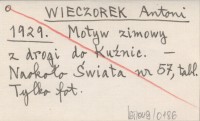 WIECZOREK Antoni
1929. Motyw zimowy
z drogi do Kuźnic. —
Naokoło Świata nr 57, tabl.
Tylko fot.